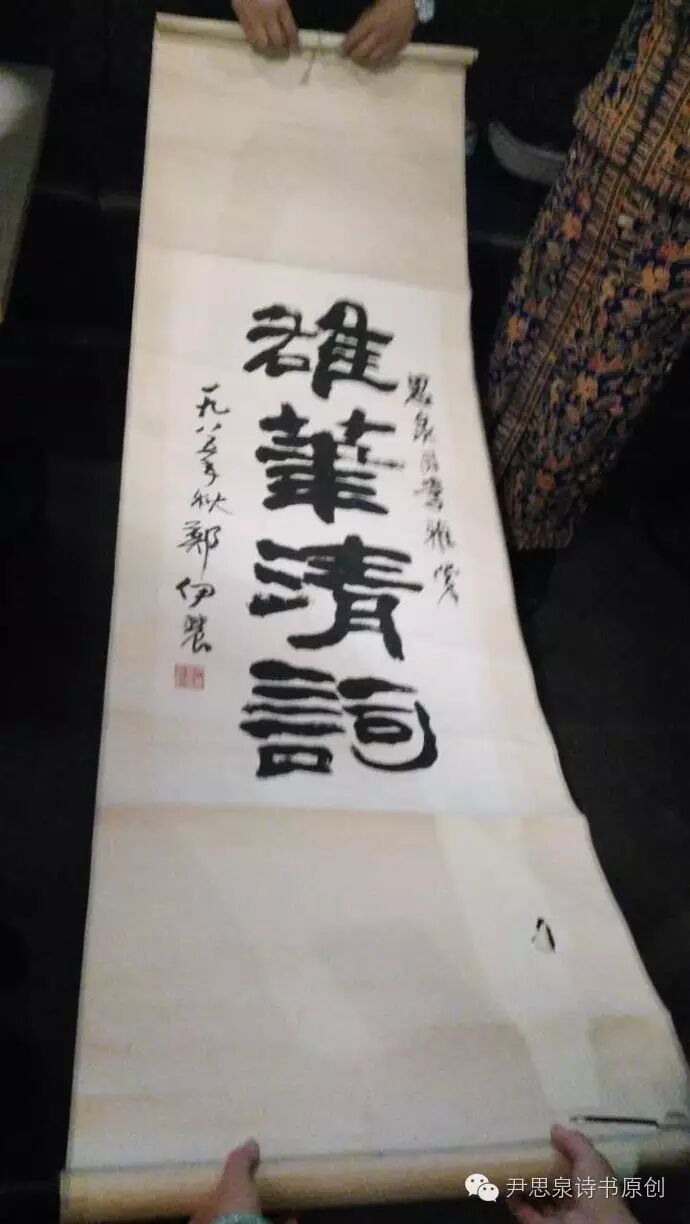 思泉同學雅賞
雄華清詞
一九八五年秋鄭伊農
尹思泉诗书原创